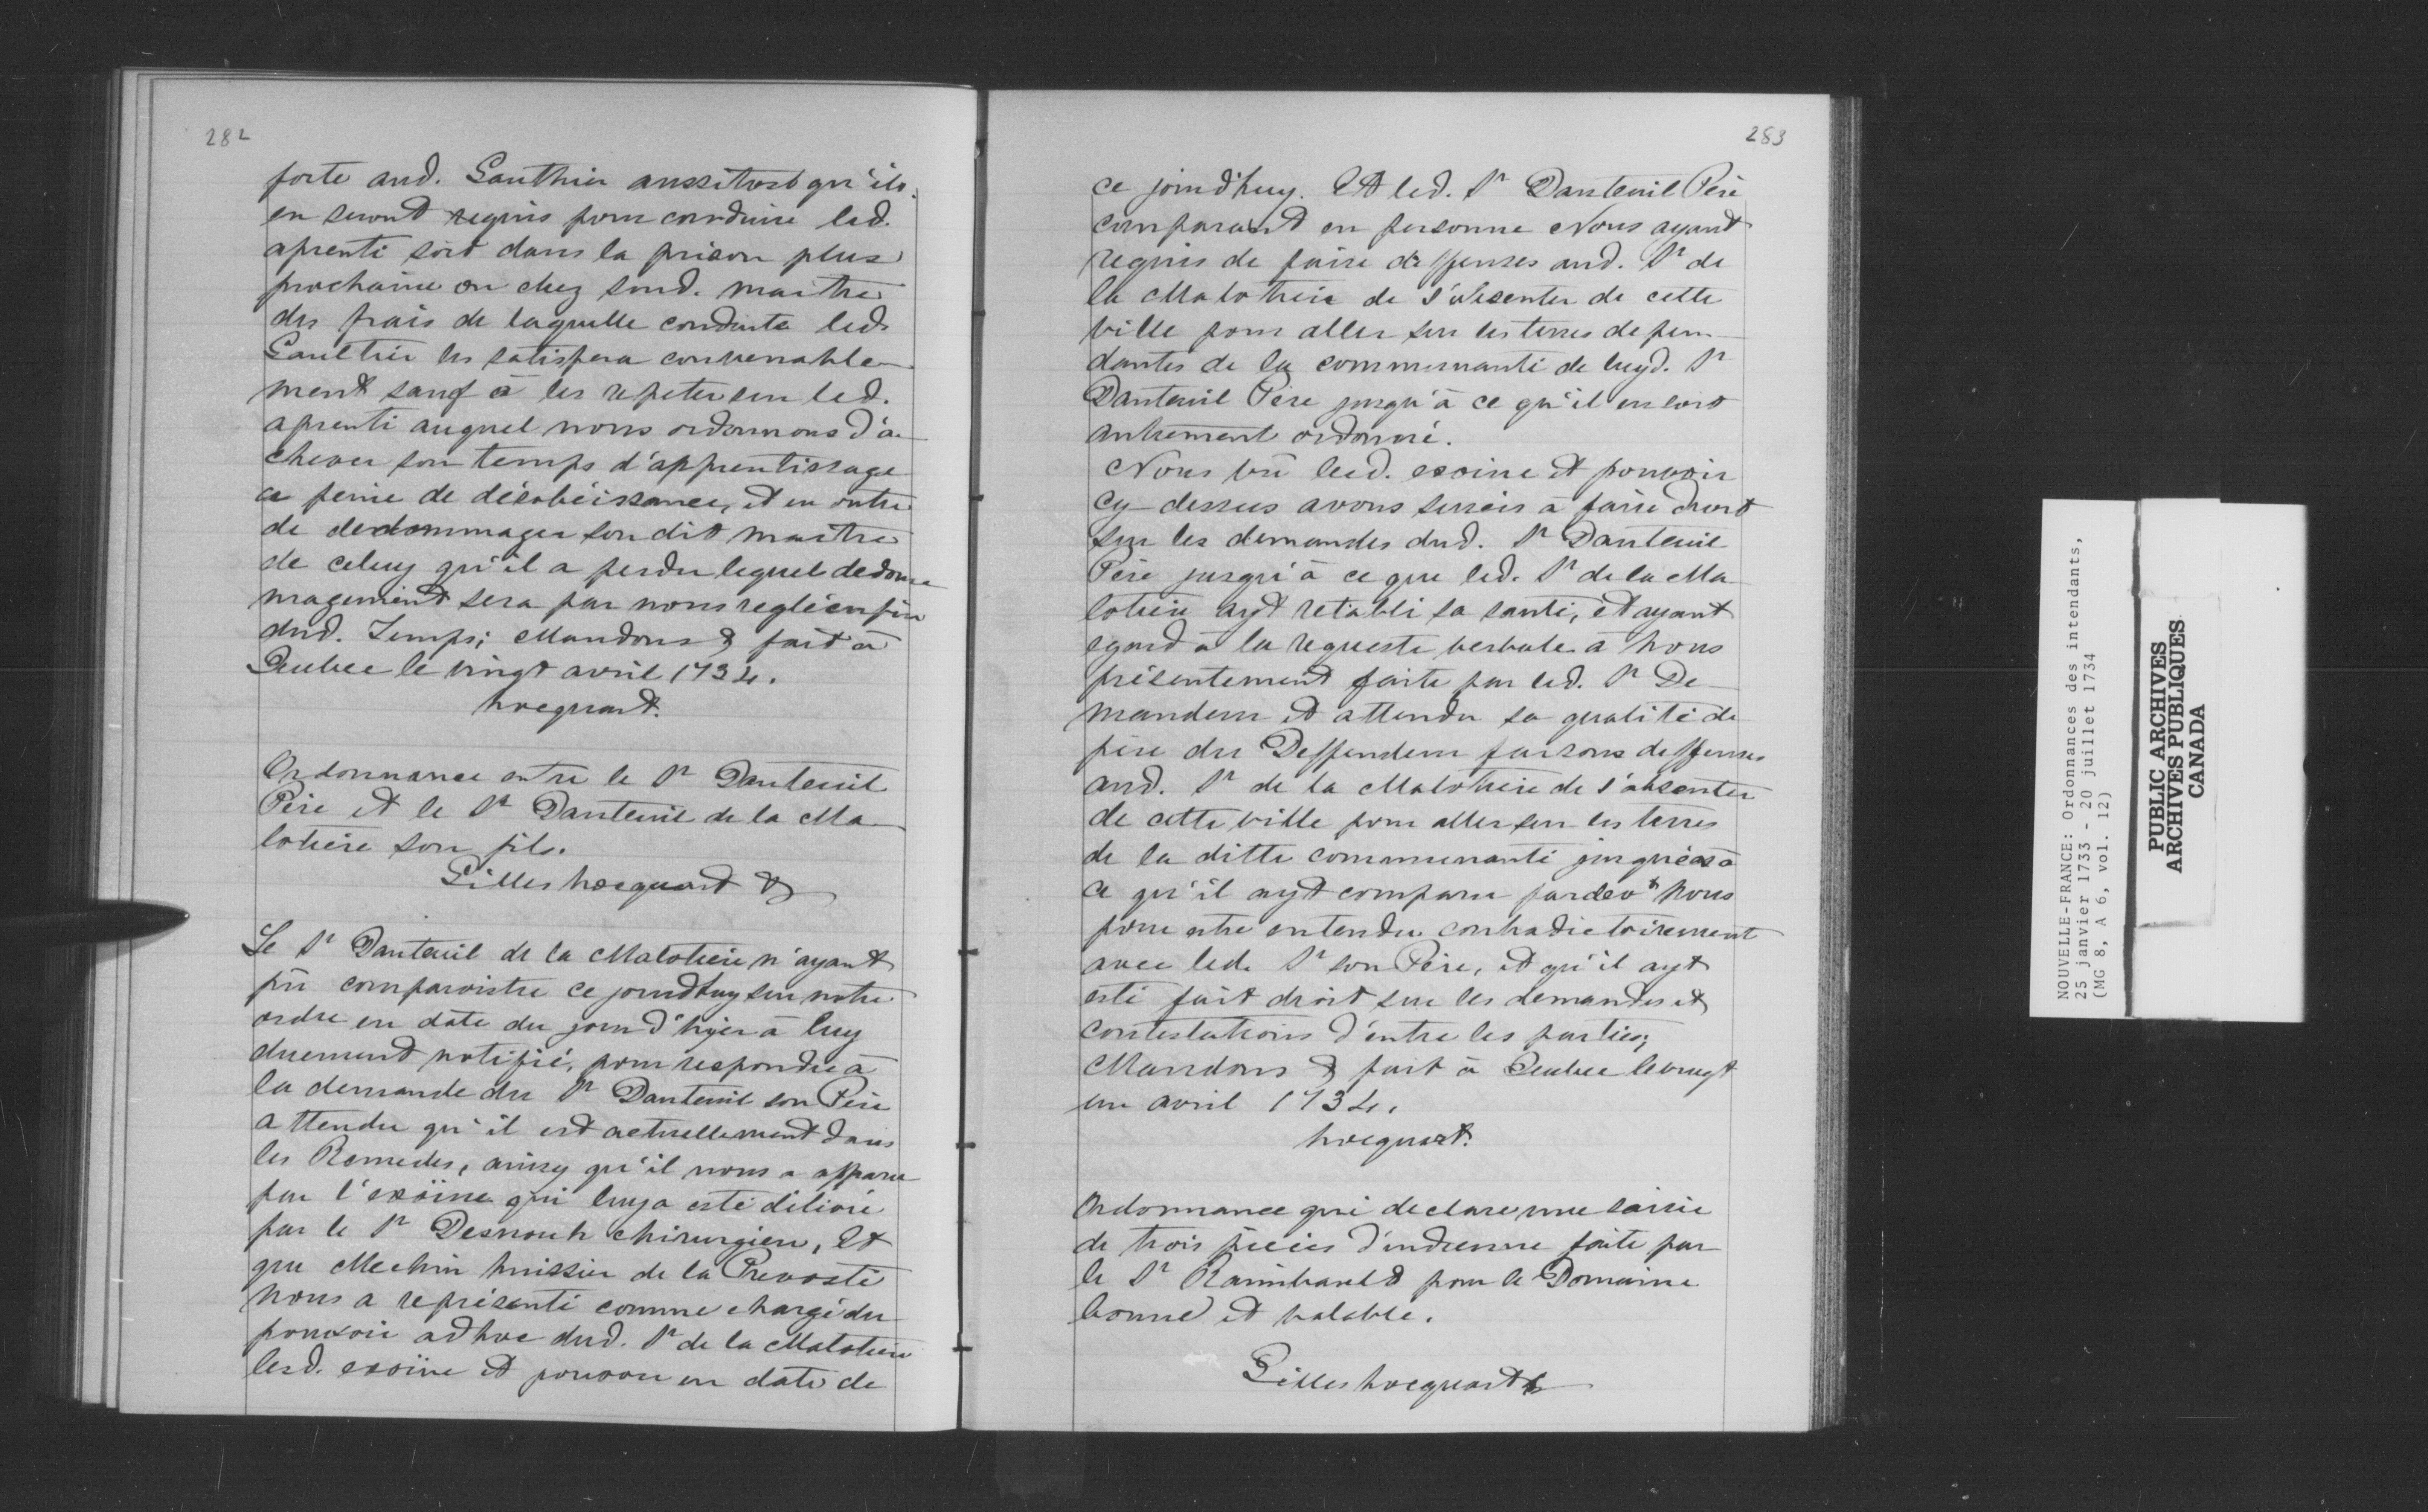 282
forte aud. Gauthier aussitost qu'ils
en seront requis pour conduire led.
aprenti soit dans la prison plus
prochaine ou chez sond. maitre
des frais de laquelle conduite led.
Gaultier les satisfera convenable-
ment sauf à les repeter sur led.
aprenti auquel nous ordonnons d'a-
chever son temps d'apprentissage
a peine de désobéissance, et en outre
de dedommager son dit maitre
de celuy qu'il a perdu lequel dedom-
magement sera par nous reglé en fin
dud. Temps; Mandons & fait à
Quebec le vingt avril 1734.
hocquart.
Ordonnance entre le Sr Dauteuil
Père et le Sr Dauteuil de la Ma-
lotière son fils.
Gilles hocquart &
Le Sr Dauteuil de la Malotiere n'ayant
pû comparoistre ce jourd'huy sur notre
ordre en date du jour d'hyer à luy
duement notifié, pour respondre à
la demande du Sr Dauteuil son Père
attendu qu'il est actuellement dans
les Remedes, ainsy qu'il nous a apparu
par l'exoine qui luy a esté délivré
par le Sr Desnoux chirurgien, Et
que Mechin huissier de la Prevosté
Nous a représenté comme chargé du
pouvoir adhoc dud. Sr de la Malotiere
lesd. exoine et pouvoir en date de
283
ce jourd'huy. Et led. Sr Dauteuil Père
comparant en personne Nous ayant
requis de faire deffenses aud. Sr de
la Malotiere de s'absenter de cette
ville pour aller sur les terres depen-
dantes de la communauté de luyd. Sr
Dauteuil Père jusqu'à ce qu'il en soit
autrement ordonné.
Nous vû lesd. exoine et pouvoir
cy-dessus avons sursis a faire droit
sur les demandes dud. Sr Dauteuil
Père jusqu'à ce que led. Sr de la Ma-
lotiere ayt retabli sa santé, et ayant
egard à la requeste verbale à Nous
présentement faite par led. Sr De-
mandeur et attendu sa qualité de
père du Deffendeur faisons deffenses
aud. Sr de la Malotiere de s'absenter
de cette ville pour aller sur les terres
de la ditte communauté jusques à
ce qu'il ayt comparu pardevt Nous
pour etre entendu contradictoirement
avec led. Sr son Père, et qu'il ayt
esté fait droit sur les demandes et
contestations d'entre les parties;
Mandons & fait à Quebec le vingt
un avril 1734.
hocquart.
Ordonnance qui declare une saisie
de trois pièces d'indienne faite par
le Sr Raimbault pour le Domaine
bonne et valable.
Gilles hocquart &
NOUVELLE-FRANCE: Ordonnances des intendants,
25 janvier 1733 - 20 juillet 1734
(MG 8, A 6, vol. 12)
PUBLIC ARCHIVES
ARCHIVES PUBLIQUES
CANADA